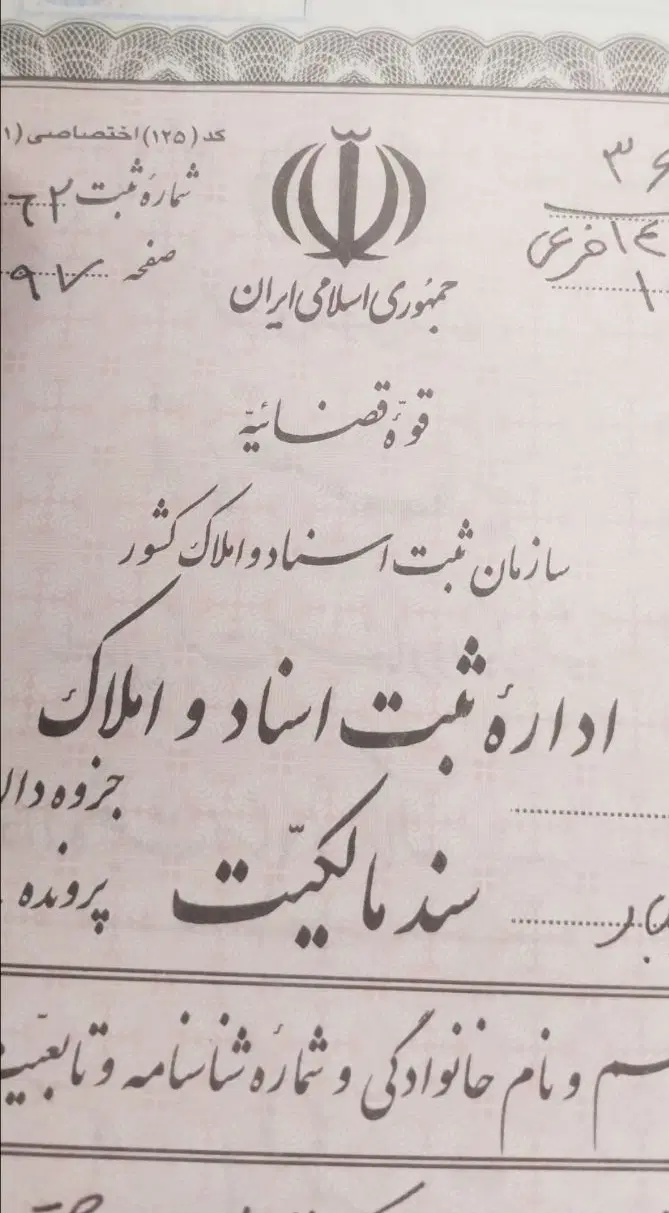 کد (۱۲۵) اختصاصی (۱
شمارهٔ ثبت
صفحه ۹۷
۳۶
۱۴ فرعی
۱
جمهوری اسلامی ایران
قوّهٔ قضائیّه
سازمان ثبت اسناد و املاک کشور
ادارهٔ ثبت اسناد و املاک
جزوه دال
سند مالکیّت
پرونده
سم و نام خانوادگی و شمارهٔ شناسنامه و تابعیّت